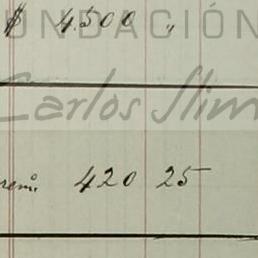 $ 4.500 "
FUNDACIÓN
Carlos Slim
rem. 420 25